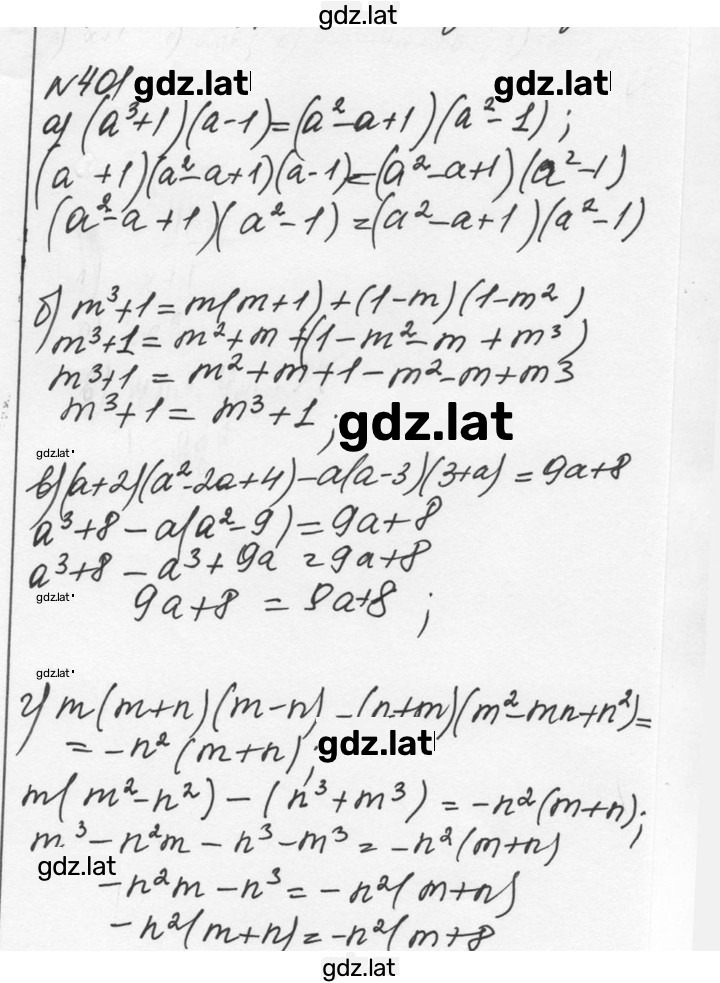 gdz.lat
№401 gdz.lat gdz.lat
а) (a³+1)(a-1)=(a²-a+1)(a²-1);
(a +1)(a²-a+1)(a-1)=(a²-a+1)(a²-1)
(a²-a+1)(a²-1)=(a²-a+1)(a²-1)
б) m³+1=m(m+1)+(1-m)(1-m²)
m³+1=m²+m+(1-m²-m+m³)
m³+1=m²+m+1-m²-m+m3
m³+1=m³+1;
gdz.lat
gdz.lat
в)(a+2)(a²-2a+4)-a(a-3)(3+a)=9a+8
a³+8-a(a²-9)=9a+8
a³+8-a³+9a=9a+8
gdz.lat
9a+8=9a+8;
gdz.lat
г) m(m+n)(m-n)-(n+m)(m²-mn+n²)=
=-n²(m+n);
gdz.lat
m(m²-n²)-(n³+m³)=-n²(m+n);
m³-n²m-n³-m³=-n²(m+n)
gdz.lat
-n²m-n³=-n²(m+n)
-n²(m+n)=-n²(m+8
gdz.lat